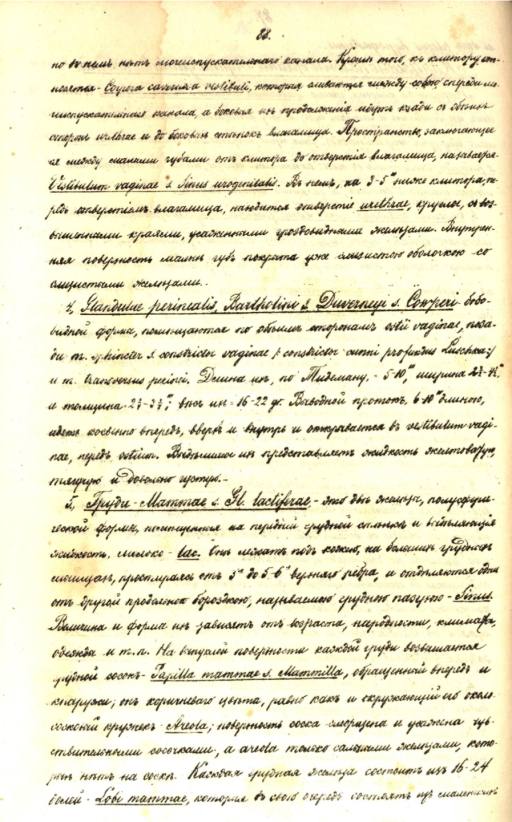 88.
но въ немъ нѣтъ мочеиспускательнаго канала. Кромѣ того, къ клитору от-
носятся - Corpora cavernosa vestibuli, которыя сливаются между собою спереди мо-
чеиспускательнаго канала, а боковыя ихъ продолженія идутъ кзади съ обѣихъ
сторонъ urethrae и до боковыхъ стѣнокъ влагалища. Пространство, заключающее-
ся между малыми губами отъ клитора до отверстія влагалища, называется
Vestibulum vaginae s. Sinus urogenitalis. Въ немъ, на 3-5''' ниже клитора, пе-
редъ отверстіемъ влагалища, находится отверстіе urethrae, круглое, съ воз-
вышенными краями, усаженными гроздевидными железами. Внутрен-
няя поверхность малыхъ губъ покрыта уже слизистою оболочкою со
слизистыми железами.
4, Glandulae perinealis, Bartholini s. Duverneyi s. Cowperi бобо-
видной формы, помѣщаются по обѣимъ сторонамъ ostii vaginae, поза-
ди m. sphincter s. constrictor vaginae (constrictor cunni profundus Luschka)
и m. transversus perinei. Длина ихъ, по Тидеману, - 5-10''' ширина
и толщина вѣсъ ихъ - 16-22 gr. Выводной протокъ, 6-10''' длиною,
идетъ косвенно впередъ, вверхъ и внутрь и открывается въ vestibulum vagi-
nae, передъ ostium. Выдѣляемое ихъ представляетъ жидкость желтоватую,
тягучую и довольно густую.-
5, Груди - Mammae s. Gl. lactiferae - это двѣ железы, полусфери-
ческой формы, помѣщенныя на передней грудной стѣнкѣ и выдѣляющія
жидкость, молоко - lac. Онѣ лежатъ подъ кожею, на большихъ грудныхъ
мышцахъ, простираясь отъ 3го до 5-6го верхняго ребра, и отдѣляются одна
отъ другой продольною бороздкою, называемою грудною пазухою - Sinus.
Величина и форма ихъ зависятъ отъ возраста, народности, климата,
одежды и т.п. На выпуклой поверхности каждой груди возвышается
грудной сосокъ - Papilla mammae s. Mammilla, обращенный впередъ и
кнаружи, онъ коричневаго цвѣта, равно какъ и окружающій его около-
сосковый кружекъ - Areola; поверхность соска сморщена и усажена чув-
ствительными сосочками, а areola только сальными железами, кото-
рыхъ нѣтъ на соскѣ. Каждая грудная железа состоитъ изъ 16-24
долей - Lobi mammae, которыя въ свою очередь состоятъ изъ маленькихъ